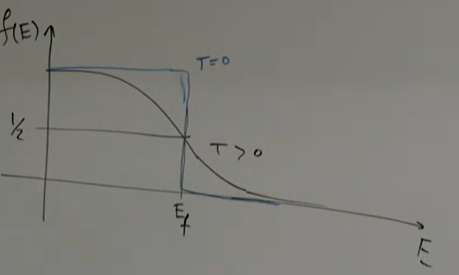 f(E)
T=0
1/2
T > 0
E_f
E